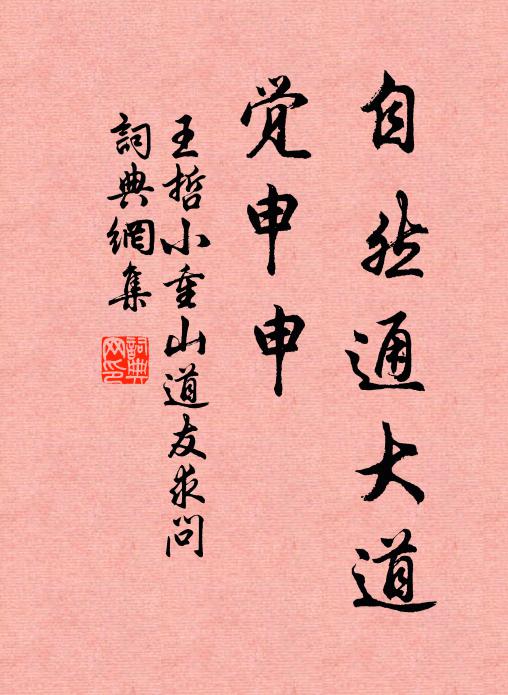 自然通大道
觉申申
王哲小重山道友求问
詞典網集
詞典
网印